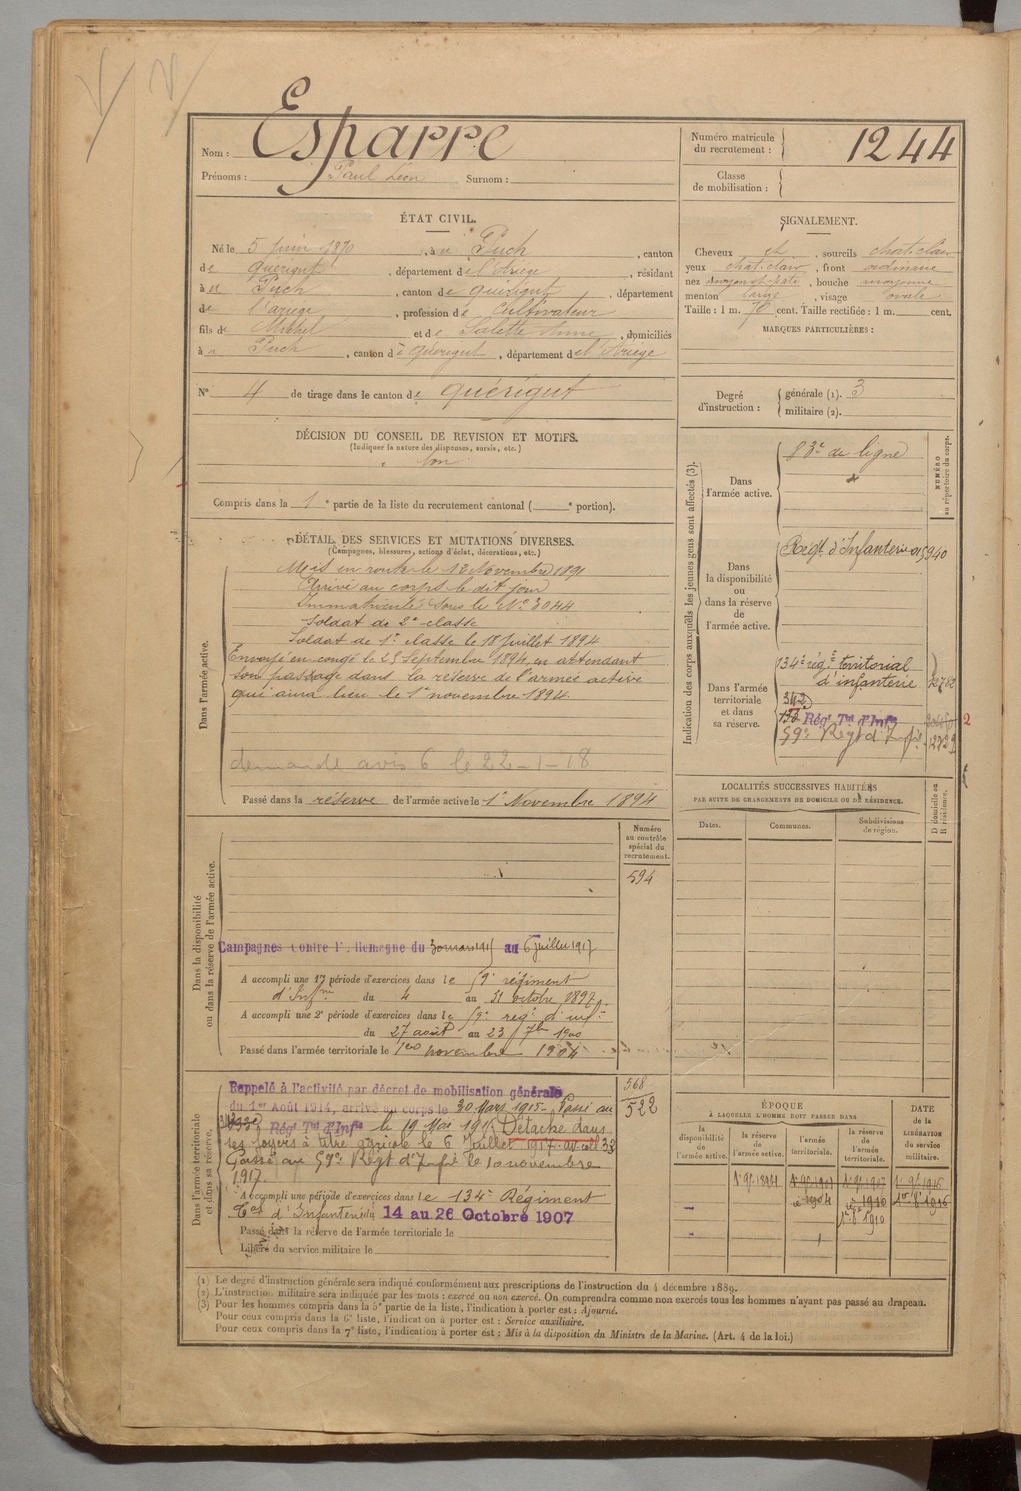 Nom : Esparre
Prénoms : Paul Léon Surnom :
Numéro matricule du recrutement : 1244
Classe de mobilisation :
ÉTAT CIVIL.
Né le 5 Juin 1870, à Puch, canton
de Quérigut, département de l'Ariège, résidant
à Puch, canton de Quérigut, département
de l'Ariège, profession de Cultivateur
fils de Michel et de Anne, domiciliés
à Puch, canton de Quérigut, département de l'Ariège
N° 4 de tirage dans le canton de Quérigut
SIGNALEMENT.
Cheveux et, sourcils chat. clair
yeux chat. clair, front ordinaire
nez, bouche moyenne
menton large, visage ovale
Taille : 1 m. 70 cent. Taille rectifiée : 1 m. cent.
MARQUES PARTICULIÈRES :
Degré d'instruction : générale (1). 3
militaire (2).
DÉCISION DU CONSEIL DE REVISION ET MOTIFS.
(Indiquer la nature des dispenses, sursis, etc.)
bon
Compris dans la 1e partie de la liste du recrutement cantonal ( e portion).
DÉTAIL DES SERVICES ET MUTATIONS DIVERSES.
(Campagnes, blessures, actions d'éclat, décorations, etc.)
Dans l'armée active.
Mis en route le 12 Novembre 1891
Arrivé au corps le dit jour
Immatriculé sous le N° 3044
Soldat de 2e classe
Soldat de 1e classe le 18 Juillet 1894
Envoyé en congé le 25 Septembre 1894, en attendant
son passage dans la réserve de l'armée active
qui aura lieu le 1er novembre 1894
demande avis 6 le 22-1-18
Passé dans la réserve de l'armée active le 1er Novembre 1894
Indication des corps auxquels les jeunes gens sont affectés (3).
NUMÉRO au répertoire du corps.
Dans l'armée active.
83e de ligne
Dans la disponibilité ou dans la réserve de l'armée active.
Régt. d'Infanterie 940
Dans l'armée territoriale et dans sa réserve.
134e rég. territorial
d'infanterie 2782
342
Régt Tal d'Infie
59e Régt d'Infie
2
LOCALITÉS SUCCESSIVES HABITÉES
PAR SUITE DE CHANGEMENTS DE DOMICILE OU DE RÉSIDENCE.
Dates. Communes. Subdivisions de région. D domicile ou R résidence.
Dans la disponibilité ou dans la réserve de l'armée active.
Numéro au contrôle spécial du recrutement.
594
Campagnes contre l'Allemagne du 30 mars 1915 au 6 juillet 1917
A accompli une 1re période d'exercices dans le 59e régiment
d'Infrie du 4 au 31 octobre 1897.
A accompli une 2e période d'exercices dans le 59e régt d'infie
du 27 août au 23 7bre 1900
Passé dans l'armée territoriale le 1er novembre 1904
Dans l'armée territoriale et dans sa réserve.
568
522
Rappelé à l'activité par décret de mobilisation générale
du 1er Août 1914, arrivé au corps le 30 Mars 1915. Passé au
Régt Tal d'Infie le 19 Mai 1915 Détaché dans
ses foyers à titre agricole le 6 Juillet 1917. av. coll 33
Passé au 59e Régt d'Infie le 10 novembre
1917.
A accompli une période d'exercices dans le 134e Régiment
Tal d'Infanterie du 14 au 26 Octobre 1907
Passé dans la réserve de l'armée territoriale le
Libéré du service militaire le
ÉPOQUE
À LAQUELLE L'HOMME DOIT PASSER DANS
la disponibilité de l'armée active. la réserve de l'armée active. l'armée territoriale. la réserve de l'armée territoriale.
DATE de la LIBÉRATION du service militaire.
1er 9bre 1910
(1) Le degré d'instruction générale sera indiqué conformément aux prescriptions de l'instruction du 4 décembre 1889.
(2) L'instruction militaire sera indiquée par les mots : exercé ou non exercé. On comprendra comme non exercés tous les hommes n'ayant pas passé au drapeau.
(3) Pour les hommes compris dans la 5e partie de la liste, l'indication à porter est : Ajourné.
Pour ceux compris dans la 6e liste, l'indication à porter est : Service auxiliaire.
Pour ceux compris dans la 7e liste, l'indication à porter est : Mis à la disposition du Ministre de la Marine. (Art. 4 de la loi.)